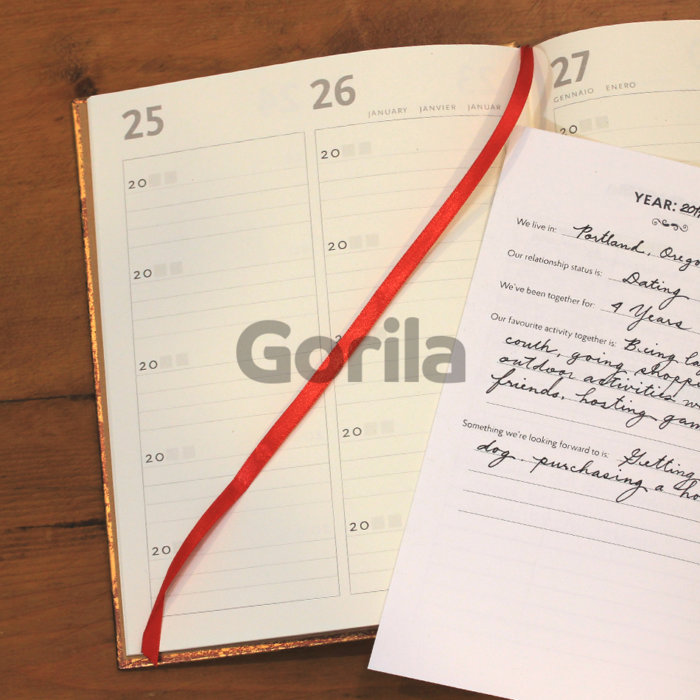 25
26
JANUARY JANVIER JANUAR
27
GENNAIO ENERO
20
20
20
20
20
20
20
2
20
20
20
Gorila
YEAR: 201
We live in: Portland, Orego
Our relationship status is: Dating
We've been together for: 4 Years
Our favourite activity together is: Being la
couch, going shoppi
outdoor activities w
friends, hosting gam
Something we're looking forward to is: Getting
dog. purchasing a ho